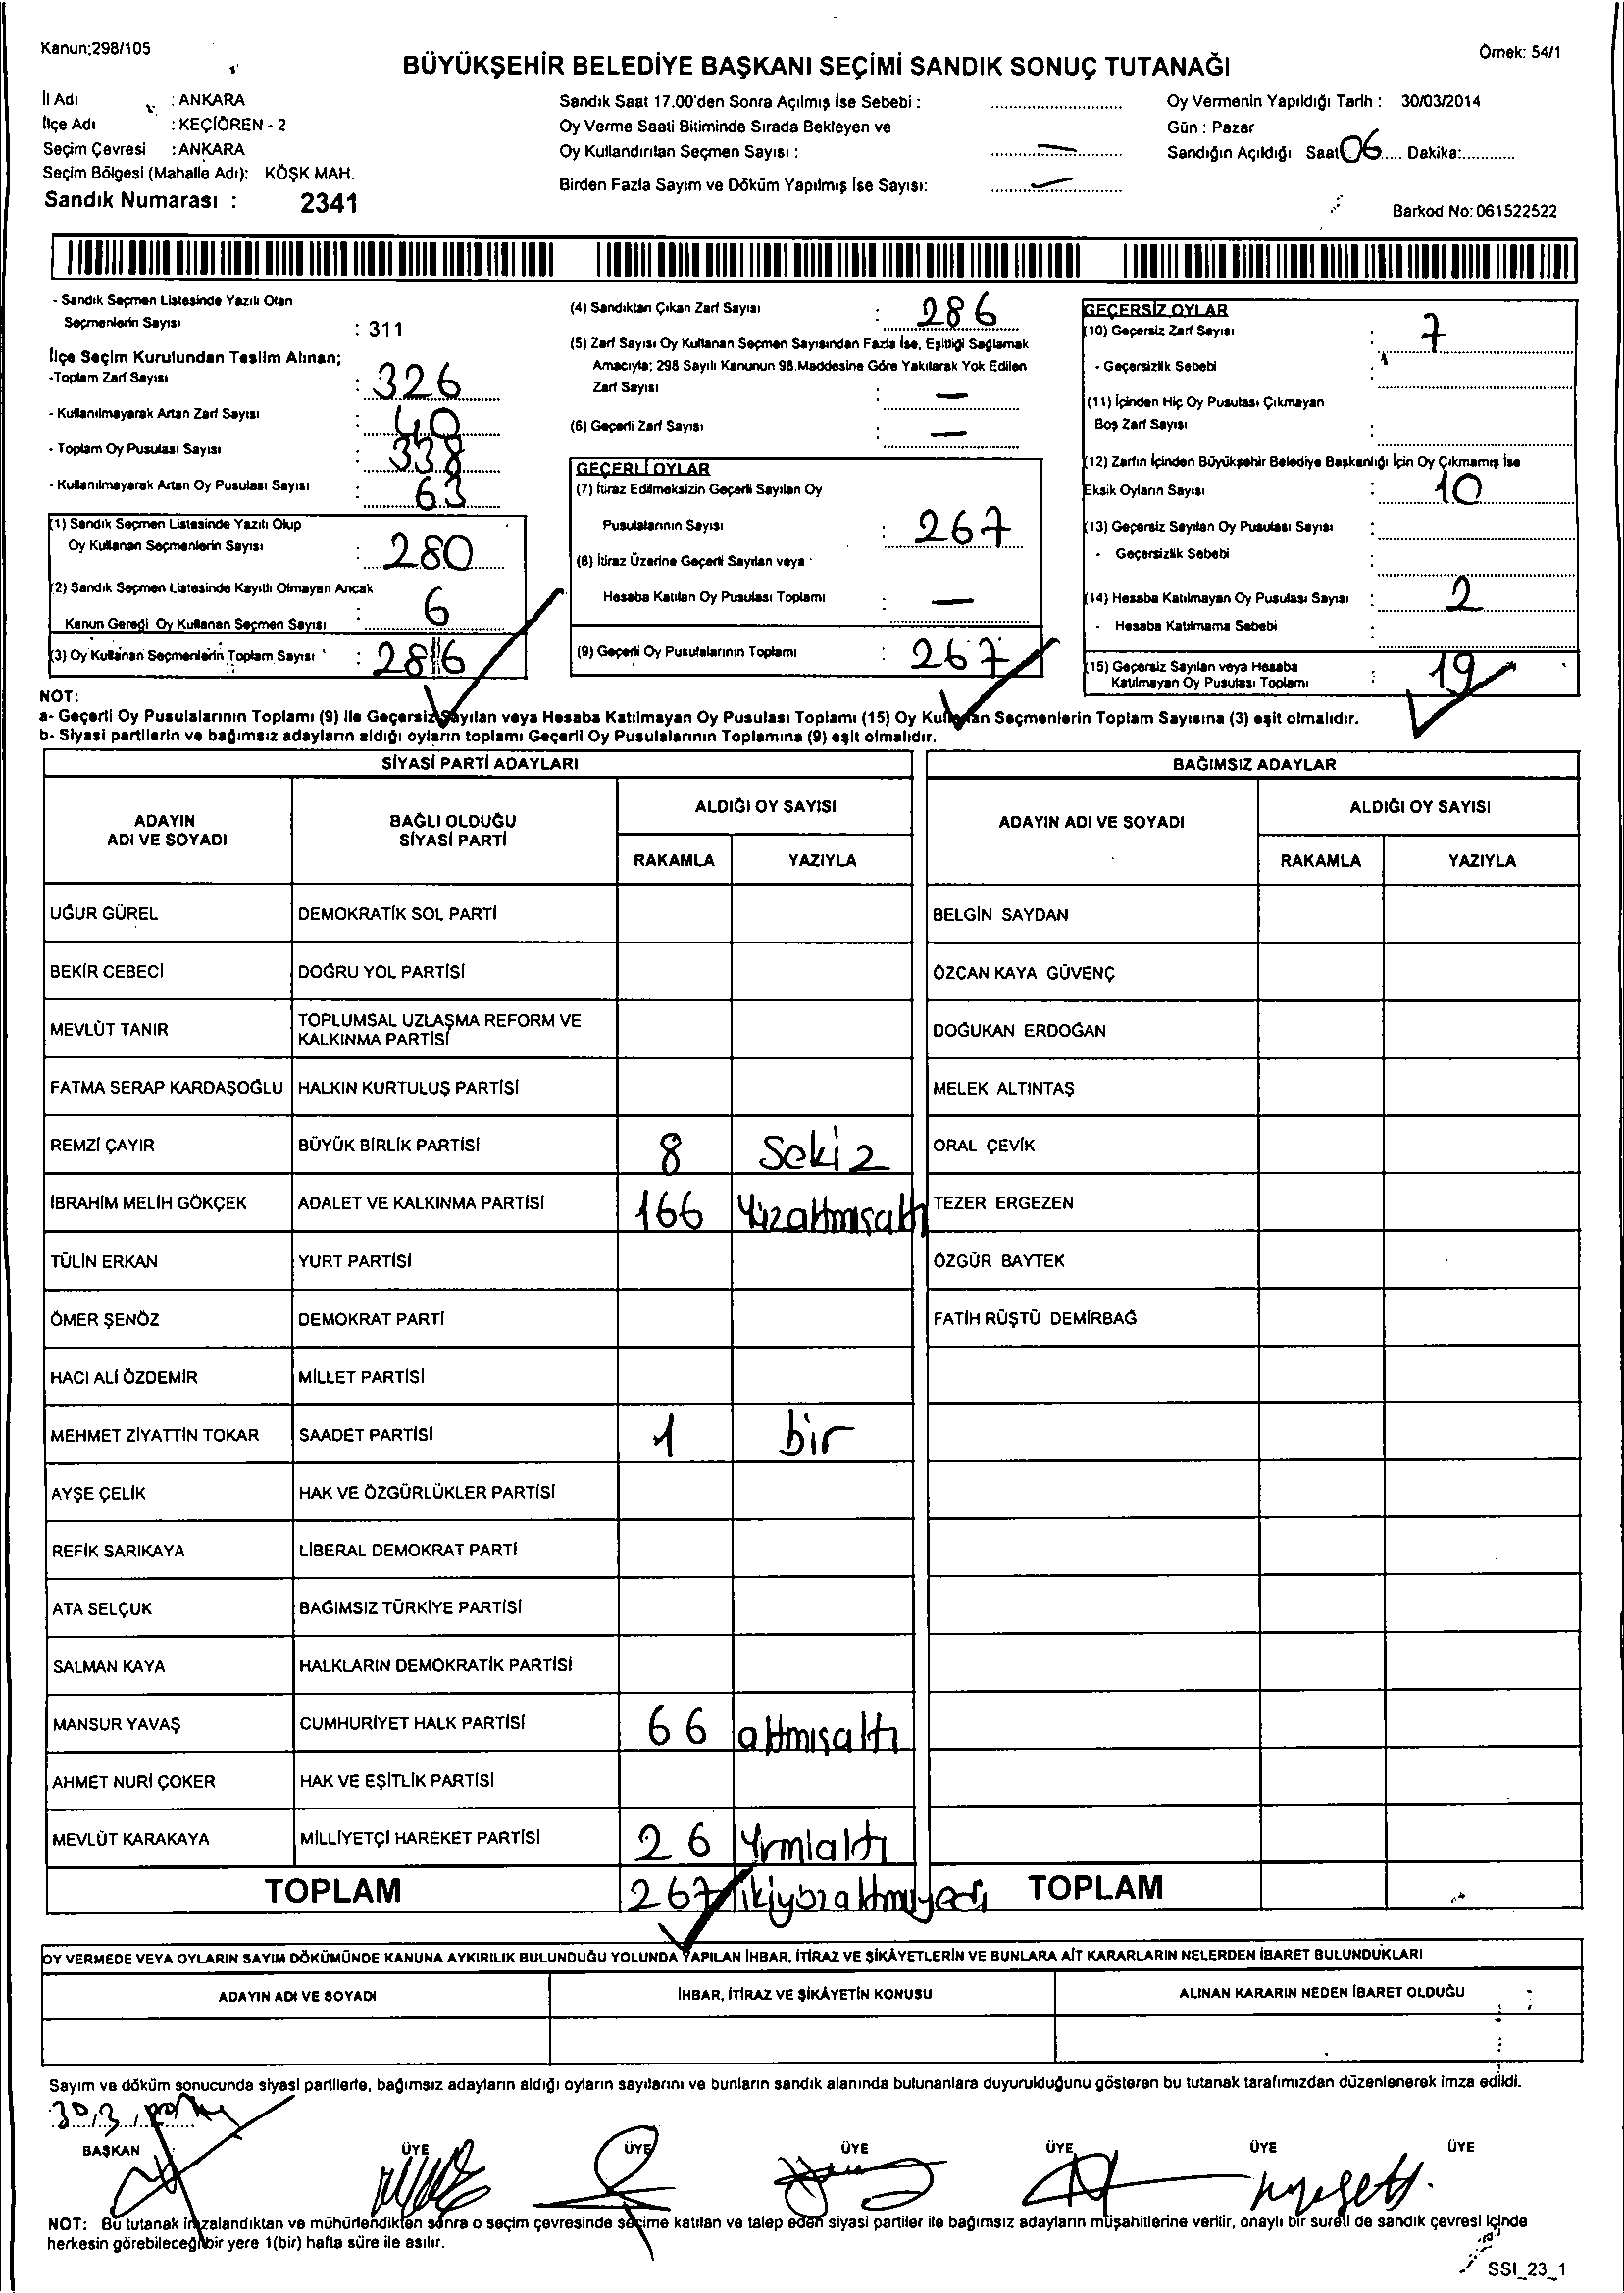 Kanun:298/105
Örnek: 54/1
BÜYÜKŞEHİR BELEDİYE BAŞKANI SEÇİMİ SANDIK SONUÇ TUTANAĞI
İl Adı : ANKARA
İlçe Adı : KEÇİÖREN - 2
Seçim Çevresi : ANKARA
Seçim Bölgesi (Mahalle Adı): KÖŞK MAH.
Sandık Numarası : 2341
Sandık Saat 17.00'den Sonra Açılmış İse Sebebi :
Oy Verme Saati Bitiminde Sırada Bekleyen ve
Oy Kullandırılan Seçmen Sayısı : —
Birden Fazla Sayım ve Döküm Yapılmış İse Sayısı: —
Oy Vermenin Yapıldığı Tarih : 30/03/2014
Gün : Pazar
Sandığın Açıldığı Saat 06 Dakika:
Barkod No: 061522522
- Sandık Seçmen Listesinde Yazılı Olan
Seçmenlerin Sayısı : 311
İlçe Seçim Kurulundan Teslim Alınan;
-Toplam Zarf Sayısı : 326
- Kullanılmayarak Artan Zarf Sayısı : 40
- Toplam Oy Pusulası Sayısı : 338
- Kullanılmayarak Artan Oy Pusulası Sayısı : 63
(1) Sandık Seçmen Listesinde Yazılı Olup
Oy Kullanan Seçmenlerin Sayısı : 280
(2) Sandık Seçmen Listesinde Kayıtlı Olmayan Ancak
Kanun Gereği Oy Kullanan Seçmen Sayısı : 6
(3) Oy Kullanan Seçmenlerin Toplam Sayısı : 286
(4) Sandıktan Çıkan Zarf Sayısı : 286
(5) Zarf Sayısı Oy Kullanan Seçmen Sayısından Fazla İse, Eşitliği Sağlamak
Amacıyla; 298 Sayılı Kanunun 98.Maddesine Göre Yakılarak Yok Edilen
Zarf Sayısı : —
(6) Geçerli Zarf Sayısı : —
GEÇERLİ OYLAR
(7) İtiraz Edilmeksizin Geçerli Sayılan Oy
Pusulalarının Sayısı : 267
(8) İtiraz Üzerine Geçerli Sayılan veya
Hesaba Katılan Oy Pusulası Toplamı : —
(9) Geçerli Oy Pusulalarının Toplamı : 267
GEÇERSİZ OYLAR
(10) Geçersiz Zarf Sayısı : 7
- Geçersizlik Sebebi :
(11) İçinden Hiç Oy Pusulası Çıkmayan
Boş Zarf Sayısı :
(12) Zarfın İçinden Büyükşehir Belediye Başkanlığı İçin Oy Çıkmamış İse
Eksik Oyların Sayısı : 10
(13) Geçersiz Sayılan Oy Pusulası Sayısı :
- Geçersizlik Sebebi
(14) Hesaba Katılmayan Oy Pusulası Sayısı : 2
- Hesaba Katılmama Sebebi :
(15) Geçersiz Sayılan veya Hesaba
Katılmayan Oy Pusulası Toplamı : 19
NOT:
a- Geçerli Oy Pusulalarının Toplamı (9) ile Geçersiz Sayılan veya Hesaba Katılmayan Oy Pusulası Toplamı (15) Oy Kullanan Seçmenlerin Toplam Sayısına (3) eşit olmalıdır.
b- Siyasi partilerin ve bağımsız adayların aldığı oyların toplamı Geçerli Oy Pusulalarının Toplamına (9) eşit olmalıdır.
SİYASİ PARTİ ADAYLARI
BAĞIMSIZ ADAYLAR
ADAYIN ADI VE SOYADI
BAĞLI OLDUĞU SİYASİ PARTİ
ALDIĞI OY SAYISI
RAKAMLA YAZIYLA
ADAYIN ADI VE SOYADI
ALDIĞI OY SAYISI
RAKAMLA YAZIYLA
UĞUR GÜREL DEMOKRATİK SOL PARTİ BELGİN SAYDAN
BEKİR CEBECİ DOĞRU YOL PARTİSİ ÖZCAN KAYA GÜVENÇ
MEVLÜT TANIR TOPLUMSAL UZLAŞMA REFORM VE KALKINMA PARTİSİ DOĞUKAN ERDOĞAN
FATMA SERAP KARDAŞOĞLU HALKIN KURTULUŞ PARTİSİ MELEK ALTINTAŞ
REMZİ ÇAYIR BÜYÜK BİRLİK PARTİSİ 8 Sekiz ORAL ÇEVİK
İBRAHİM MELİH GÖKÇEK ADALET VE KALKINMA PARTİSİ 166 Yüzaltmışaltı TEZER ERGEZEN
TÜLİN ERKAN YURT PARTİSİ ÖZGÜR BAYTEK
ÖMER ŞENÖZ DEMOKRAT PARTİ FATİH RÜŞTÜ DEMİRBAĞ
HACI ALİ ÖZDEMİR MİLLET PARTİSİ
MEHMET ZİYATTİN TOKAR SAADET PARTİSİ 1 bir
AYŞE ÇELİK HAK VE ÖZGÜRLÜKLER PARTİSİ
REFİK SARIKAYA LİBERAL DEMOKRAT PARTİ
ATA SELÇUK BAĞIMSIZ TÜRKİYE PARTİSİ
SALMAN KAYA HALKLARIN DEMOKRATİK PARTİSİ
MANSUR YAVAŞ CUMHURİYET HALK PARTİSİ 66 altmışaltı
AHMET NURİ ÇOKER HAK VE EŞİTLİK PARTİSİ
MEVLÜT KARAKAYA MİLLİYETÇİ HAREKET PARTİSİ 26 Yirmialtı
TOPLAM 267 ikiyüzaltmışyedi TOPLAM
OY VERMEDE VEYA OYLARIN SAYIM DÖKÜMÜNDE KANUNA AYKIRILIK BULUNDUĞU YOLUNDA YAPILAN İHBAR, İTİRAZ VE ŞİKÂYETLERİN VE BUNLARA AİT KARARLARIN NELERDEN İBARET BULUNDUKLARI
ADAYIN ADI VE SOYADI İHBAR, İTİRAZ VE ŞİKÂYETİN KONUSU ALINAN KARARIN NEDEN İBARET OLDUĞU
Sayım ve döküm sonucunda siyasi partilerle, bağımsız adayların aldığı oyların sayılarını ve bunların sandık alanında bulunanlara duyurulduğunu gösteren bu tutanak tarafımızdan düzenlenerek imza edildi.
30/3/
BAŞKAN ÜYE ÜYE ÜYE ÜYE ÜYE ÜYE
NOT: Bu tutanak imzalandıktan ve mühürlendikten sonra o seçim çevresinde seçime katılan ve talep eden siyasi partiler ile bağımsız adayların müşahitlerine verilir, onaylı bir sureti de sandık çevresi içinde
herkesin görebileceği bir yere 1(bir) hafta süre ile asılır.
SSI_23_1